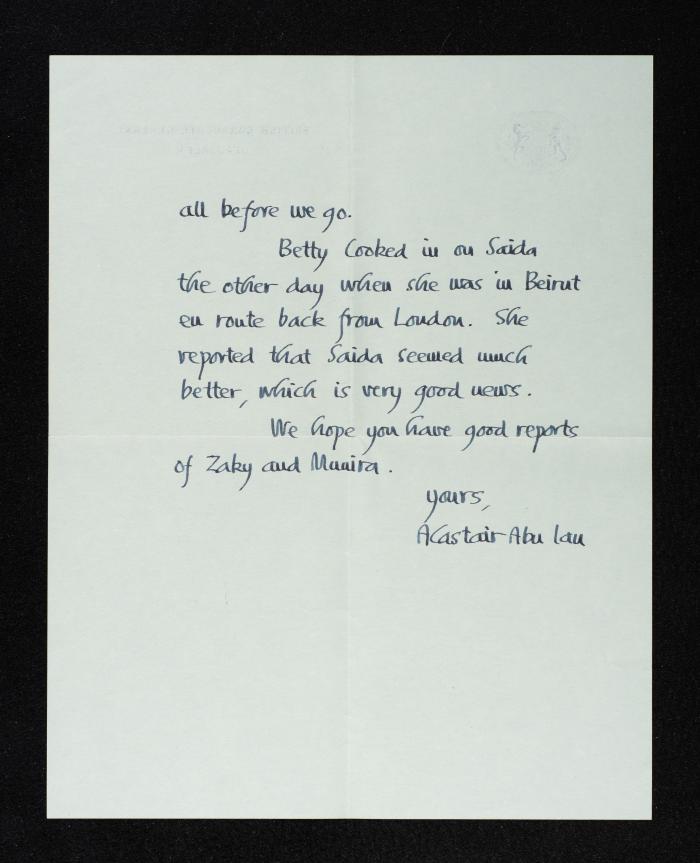 all before we go.
Betty looked in on Saida
the other day when she was in Beirut
en route back from London. She
reported that Saida seemed much
better, which is very good news.
We hope you have good reports
of Zaky and Munira.
yours,
Alastair Abu Ian